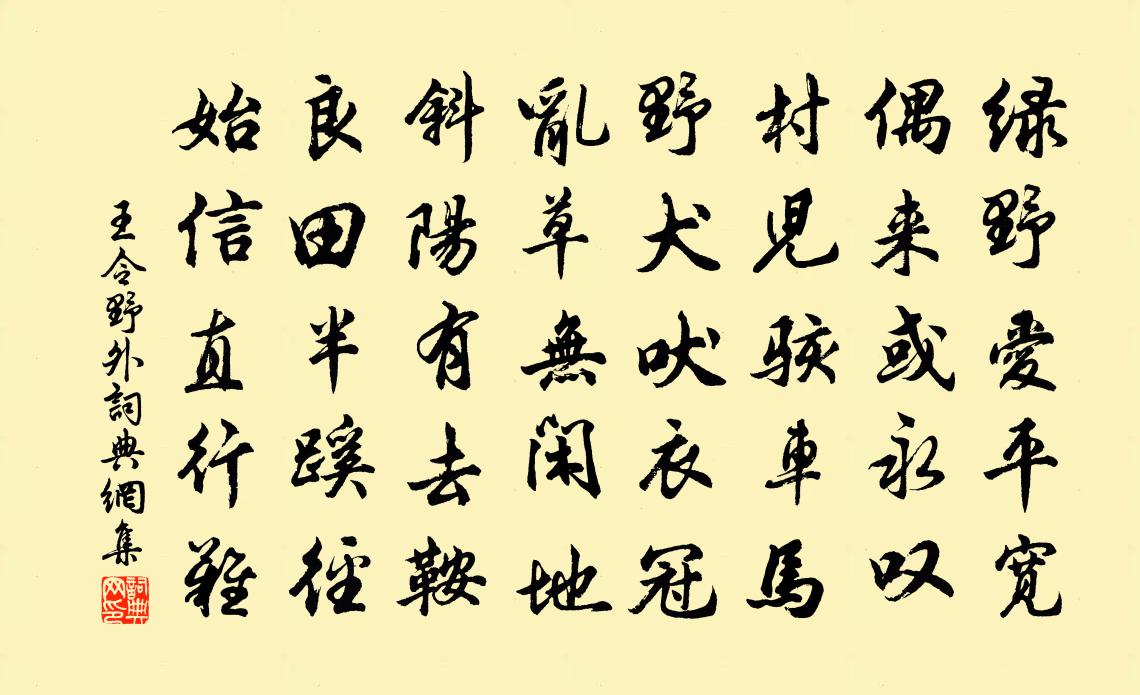 绿野爱平宽
偶来或永叹
村児駭車馬
野犬吠衣冠
亂草無閑地
斜陽有去鞍
良田半蹊徑
始信直行難
王令野外詞典網集
詞典网印